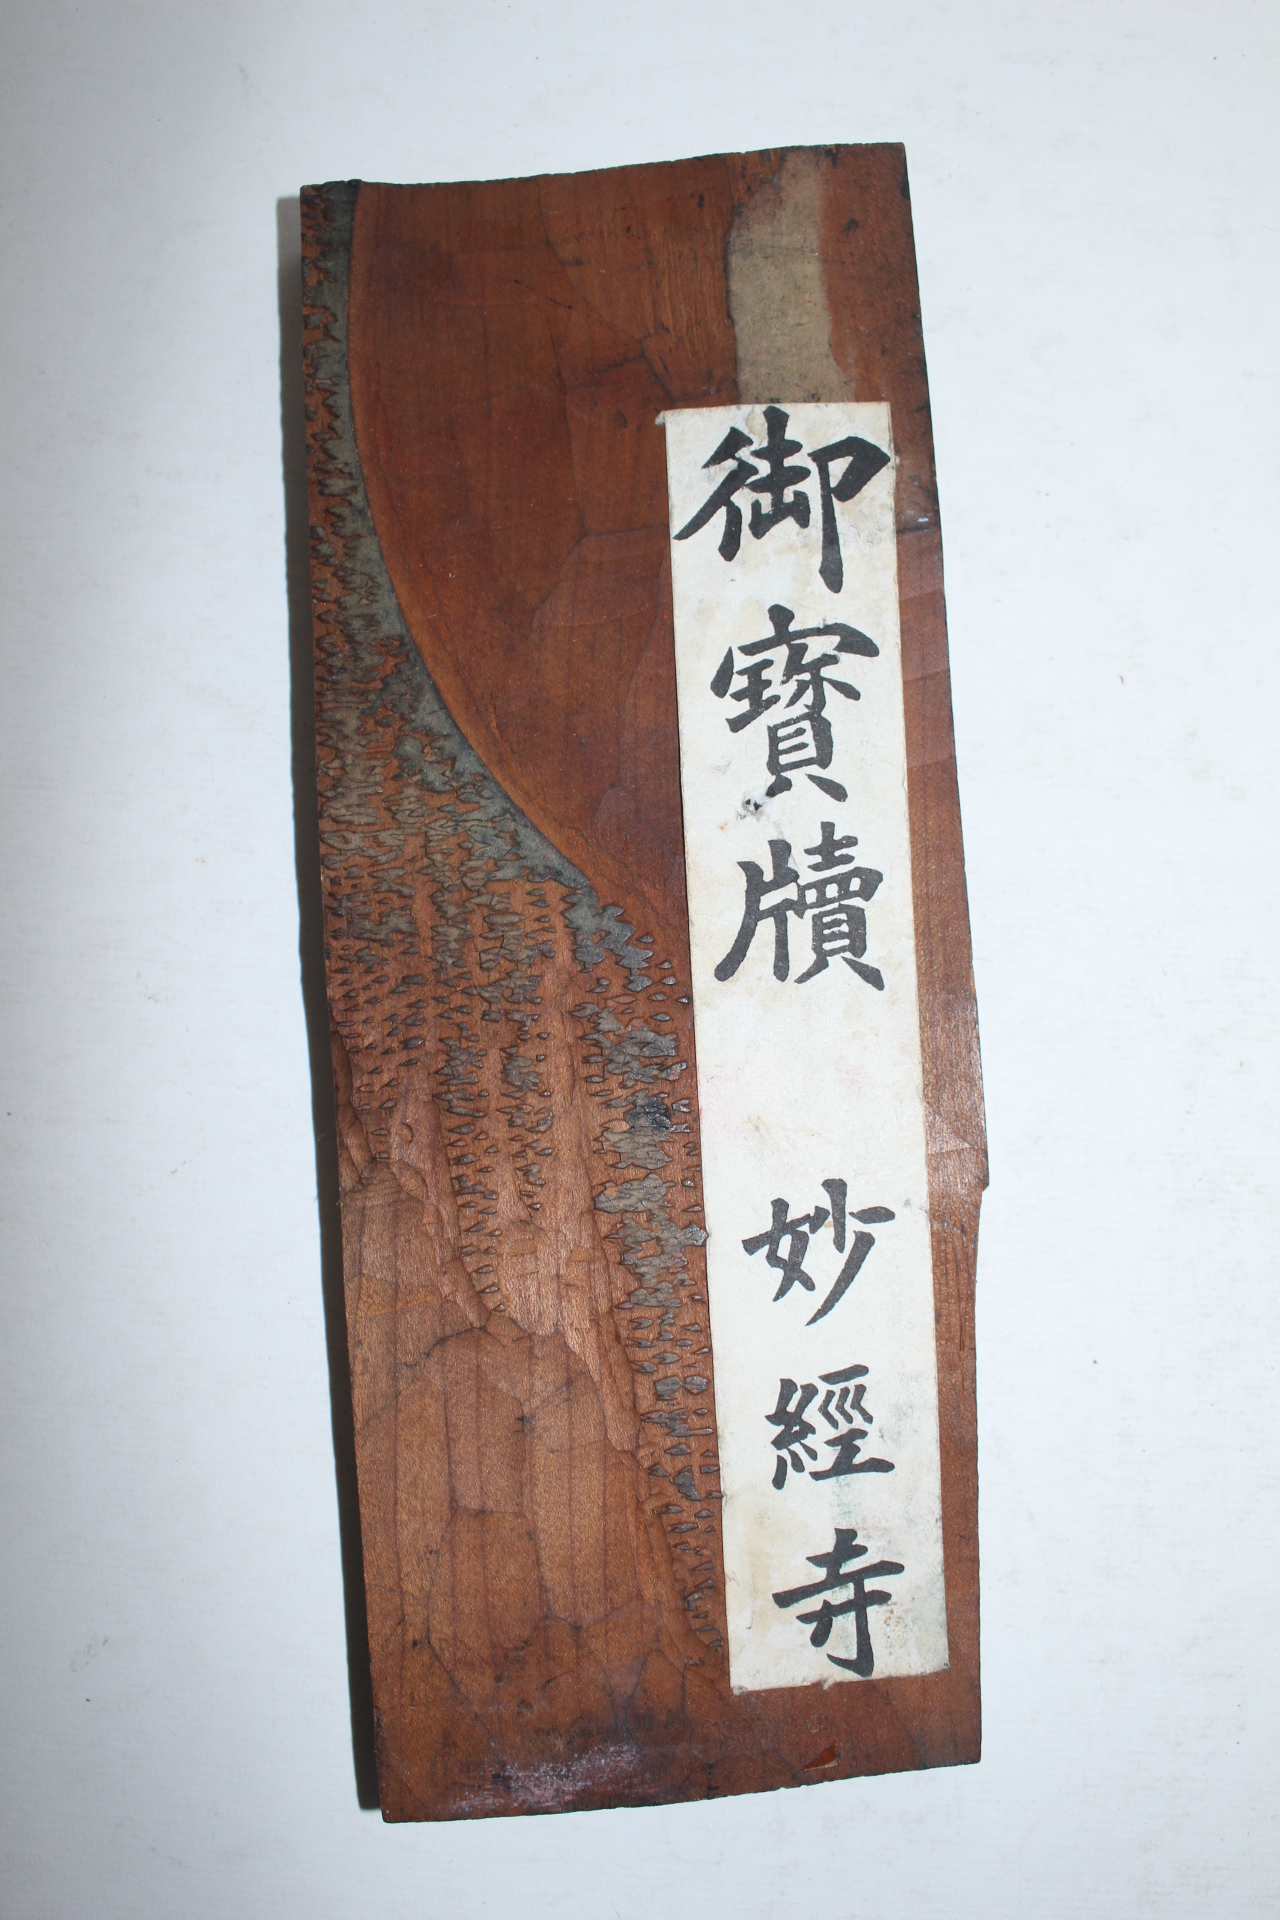 御寶牘 妙經寺